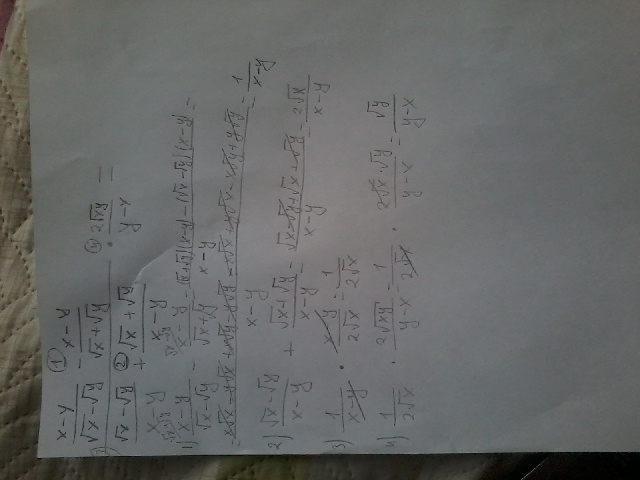 (x-y)/(√x-√y) ① - (x-y)/(√x+√y)
(√x-√y)/(x-y) ② + (√x+√y)/(x-y) ④ · 2√xy/(y-x) =
1) (x-y)/(√x-√y) - (x-y)/(√x+√y) = ((√x+√y)(x-y)-(√x-√y)(x-y))/(x-y) =
= 1/(x-y)
2) (√x-√y)/(x-y) + (√x+√y)/(x-y) = (√x-√y+√x+√y)/(x-y) = 2√x/(x-y)
3) 1/(x-y) · (x-y)/2√x = 1/2√x
4) 1/2√x · 2√xy/(y-x) = 1/2√x · 2√x·√y/(y-x) = √y/(y-x)